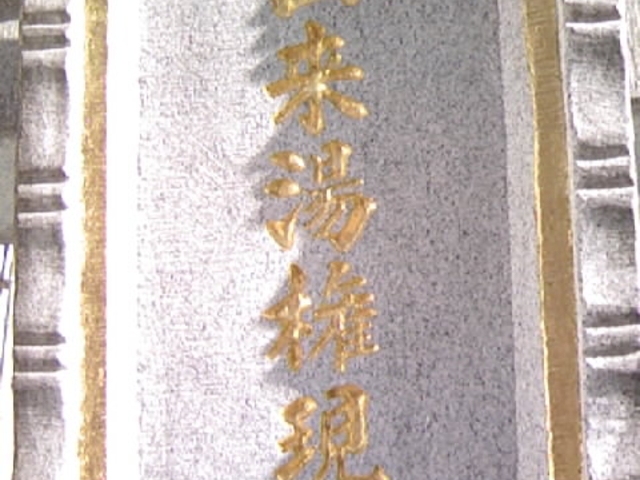 来湯権現